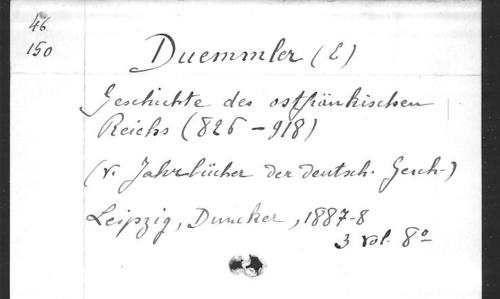 46
150
Duemmler (E)
Geschichte des ostfränkischen
Reichs (826-918)
(v. Jahrbücher der deutsch. Gesch-)
Leipzig, Duncker, 1887-8
3 vol. 8º